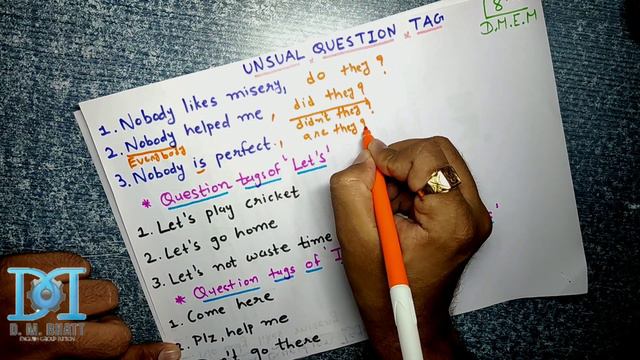 8
D.M.E.M
UNSUAL QUESTION TAG
1. Nobody likes misery, do they?
2. Nobody helped me, did they?
Everybody didn't they?
3. Nobody is perfect, are they?
* Question tugs of 'Let's'
1. Let's play cricket
2. Let's go home
3. Let's not waste time
* Question tugs of
1. Come here
2. Plz, help me
't go there
D. M. BHATT
ENGLISH GROUP TUITION